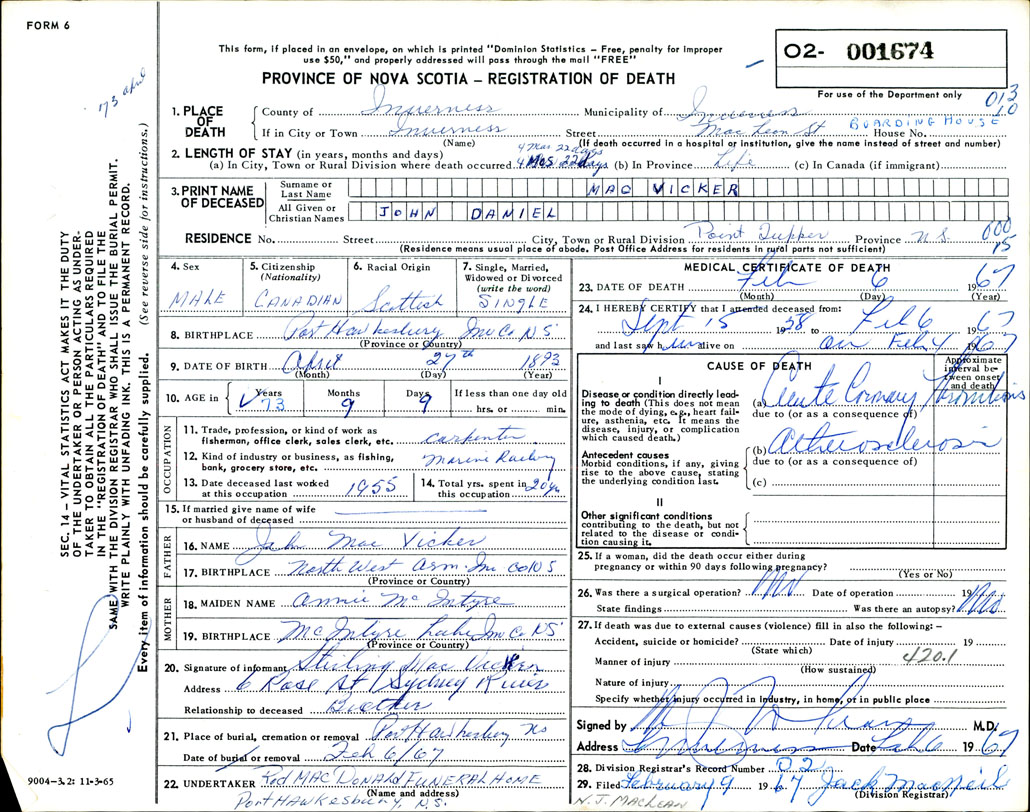 FORM 6
This form, if placed in an envelope, on which is printed "Dominion Statistics – Free, penalty for improper
use $50," and properly addressed will pass through the mail "FREE"
PROVINCE OF NOVA SCOTIA – REGISTRATION OF DEATH
02- 001674
For use of the Department only
013
10
73 April
1. PLACE OF DEATH
County of Inverness Municipality of Inverness
If in City or Town Inverness Street MacLeon St House No. BOARDING HOUSE
(Name) (If death occurred in a hospital or institution, give the name instead of street and number)
4 Mos 22 days
2. LENGTH OF STAY (in years, months and days)
(a) In City, Town or Rural Division where death occurred 4 Mos 22 days (b) In Province Life (c) In Canada (if immigrant)
3. PRINT NAME OF DECEASED
Surname or Last Name MAC VICKER
All Given or Christian Names JOHN DANIEL
RESIDENCE No. Street City, Town or Rural Division Point Tupper Province N.S.
000
15
(Residence means usual place of abode. Post Office Address for residents in rural parts not sufficient)
4. Sex MALE
5. Citizenship (Nationality) CANADIAN
6. Racial Origin Scottish
7. Single, Married, Widowed or Divorced (write the word) SINGLE
8. BIRTHPLACE Port Hawkesbury Inv Co NS
(Province or Country)
9. DATE OF BIRTH April 27th 1893
(Month) (Day) (Year)
10. AGE in Years 73 Months 9 Days 9 If less than one day old
hrs. or min.
OCCUPATION
11. Trade, profession, or kind of work as fisherman, office clerk, sales clerk, etc. carpenter
12. Kind of industry or business, as fishing, bank, grocery store, etc. Marine Railway
13. Date deceased last worked at this occupation 1955
14. Total yrs. spent in this occupation 20 yrs
15. If married give name of wife or husband of deceased
FATHER
16. NAME John Mac Vicker
17. BIRTHPLACE North West Arm Inv Co NS
(Province or Country)
MOTHER
18. MAIDEN NAME Annie McIntyre
19. BIRTHPLACE McIntyre Lake Inv Co NS
(Province or Country)
20. Signature of informant Stirling MacVicker
Address 6 Rose St Sydney River
Relationship to deceased Brother
21. Place of burial, cremation or removal Port Hawkesbury NS
Date of burial or removal Feb 6/67
22. UNDERTAKER Rod MACDONALD FUNERAL HOME
(Name and address)
Port HAWKESBURY, N.S.
MEDICAL CERTIFICATE OF DEATH
23. DATE OF DEATH Feb 6 1967
(Month) (Day) (Year)
24. I HEREBY CERTIFY that I attended deceased from:
Sept 15 1958 to Feb 6 1967
and last saw him alive on Feb 4 1967
CAUSE OF DEATH
Approximate interval between onset and death
I
Disease or condition directly leading to death (This does not mean the mode of dying, e.g., heart failure, asthenia, etc. It means the disease, injury, or complication which caused death.)
(a) Acute Coronary Thrombosis
due to (or as a consequence of)
Antecedent causes
Morbid conditions, if any, giving rise to the above cause, stating the underlying condition last.
(b) Atherosclerosis
due to (or as a consequence of)
(c)
II
Other significant conditions
contributing to the death, but not related to the disease or condition causing it.
25. If a woman, did the death occur either during pregnancy or within 90 days following pregnancy?
(Yes or No)
26. Was there a surgical operation? No Date of operation 19
State findings Was there an autopsy? No
27. If death was due to external causes (violence) fill in also the following: –
Accident, suicide or homicide? Date of injury 19
(State which)
Manner of injury 420.1
(How sustained)
Nature of injury
Specify whether injury occurred in industry, in home, or in public place
Signed by M.D.
Address Inverness Date Feb 6 1967
28. Division Registrar's Record Number 02
29. Filed February 9 1967 Jack MacNeil
(Division Registrar)
N.J. MACLEAN
SEC. 14 – VITAL STATISTICS ACT MAKES IT THE DUTY
OF THE UNDERTAKER OR PERSON ACTING AS UNDER-
TAKER TO OBTAIN ALL THE PARTICULARS REQUIRED
IN THE "REGISTRATION OF DEATH" AND TO FILE THE
SAME WITH THE DIVISION REGISTRAR WHO SHALL ISSUE THE BURIAL PERMIT.
WRITE PLAINLY WITH UNFADING INK. THIS IS A PERMANENT RECORD.
Every item of information should be carefully supplied. (See reverse side for instructions.)
9004–3.2: 11-3-65